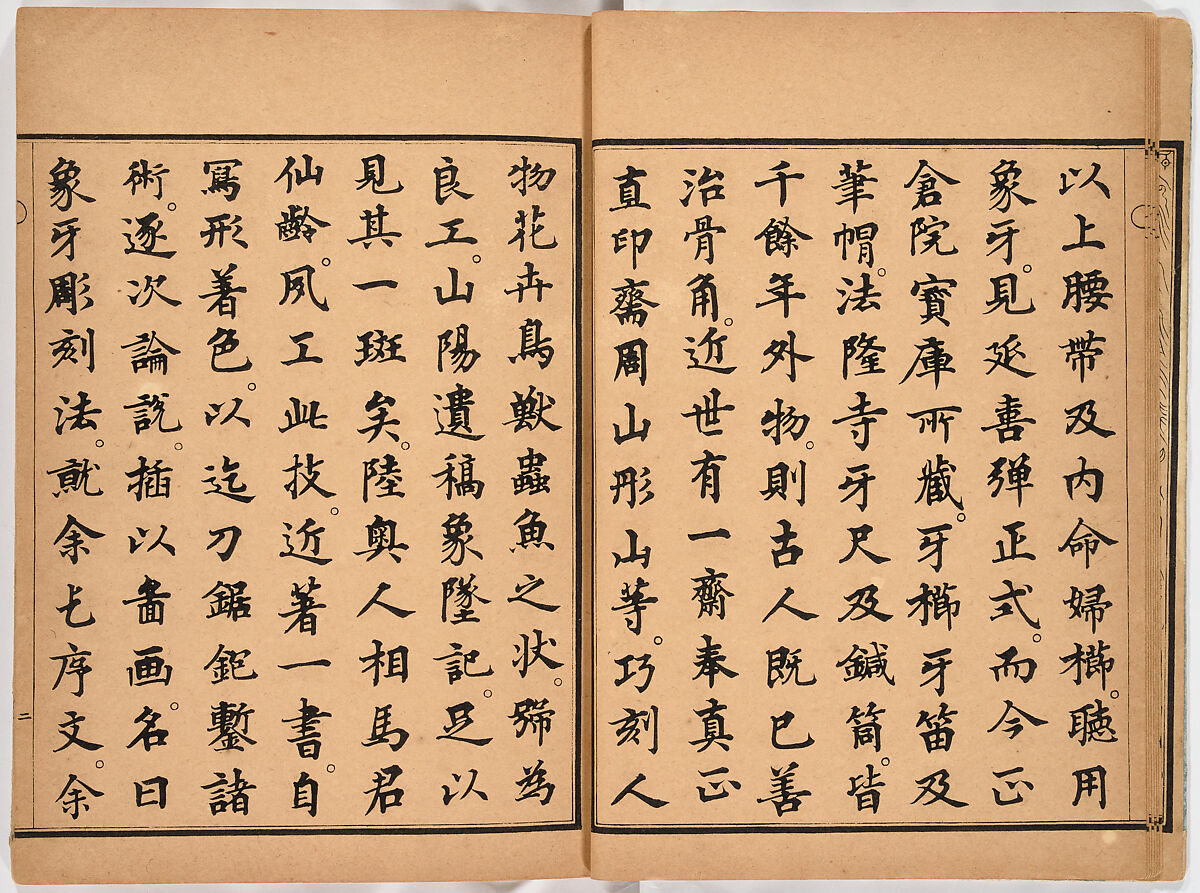 以上腰帶及内命婦櫛。聽用
象牙。見延喜弾正式。而今正
倉院寳庫所蔵。牙櫛牙笛及
筆帽。法隆寺牙尺及鍼筒。皆
千餘年外物。則古人既已善
治骨角。近世有一齋奉真正
直印齋周山形山等。巧刻人
物花卉鳥獣蟲魚之状。號為
良工。山陽遺稿象墜記。足以
見其一斑矣。陸奥人相馬君
仙齡。夙工此技。近著一書。自
冩形着色。以迄刀鋸鉋鏨諸
術。逐次論說。插以啚画。名曰
象牙彫刻法。就余乞序文。余
二